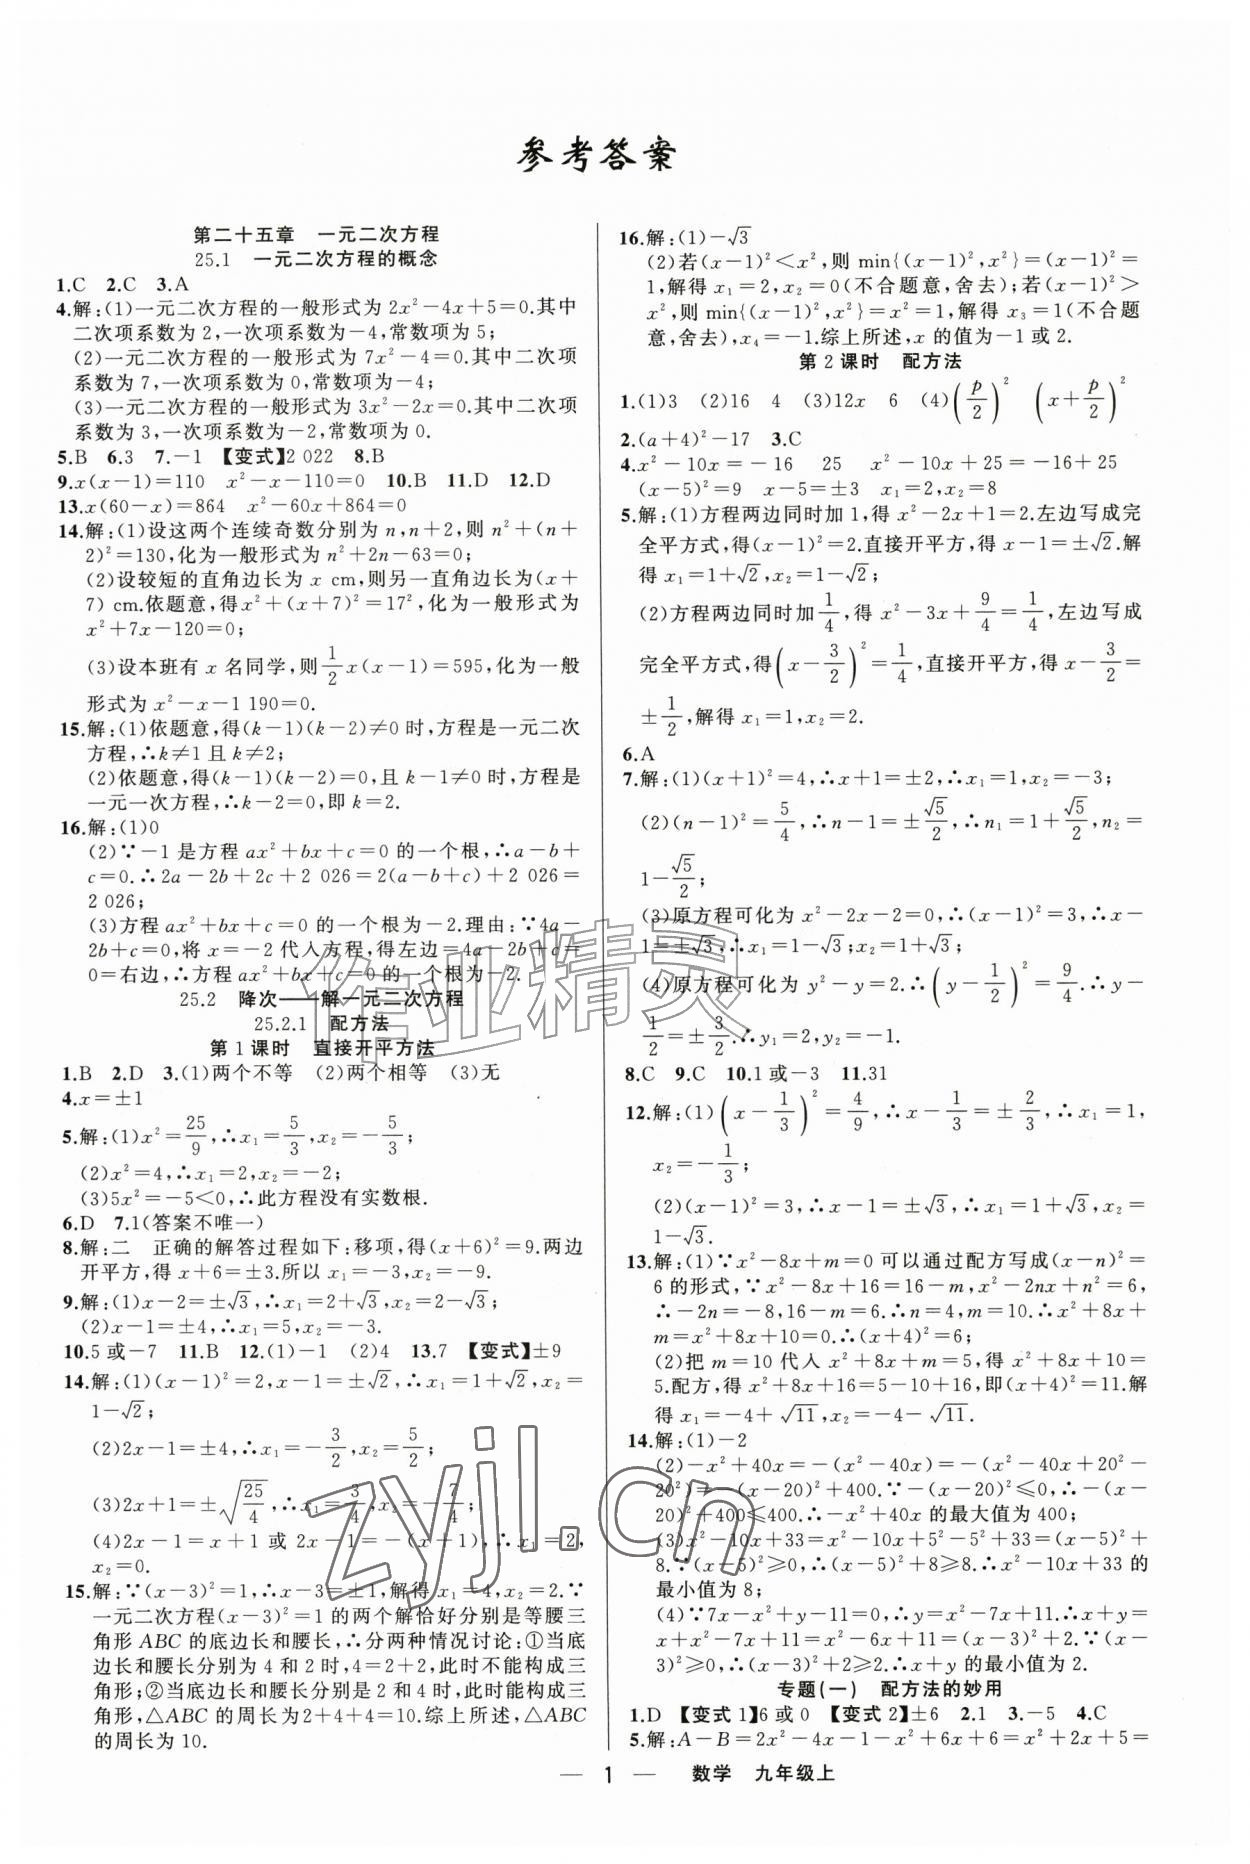 参考答案
第二十五章　一元二次方程
25.1　一元二次方程的概念
1.C　2.C　3.A
4.解:(1)一元二次方程的一般形式为 2x²－4x＋5＝0.其中
二次项系数为 2,一次项系数为－4,常数项为 5;
(2)一元二次方程的一般形式为 7x²－4＝0.其中二次项
系数为 7,一次项系数为 0,常数项为－4;
(3)一元二次方程的一般形式为 3x²－2x＝0.其中二次项
系数为 3,一次项系数为－2,常数项为 0.
5.B　6.3　7.－1　【变式】2 022　8.B
9.x(x－1)＝110　x²－x－110＝0　10.B　11.D　12.D
13.x(60－x)＝864　x²－60x＋864＝0
14.解:(1)设这两个连续奇数分别为 n,n＋2,则 n²＋(n＋
2)²＝130,化为一般形式为 n²＋2n－63＝0;
(2)设较短的直角边长为 x cm,则另一直角边长为(x＋
7) cm.依题意,得 x²＋(x＋7)²＝17²,化为一般形式为
x²＋7x－120＝0;
(3)设本班有 x 名同学,则 1/2 x(x－1)＝595,化为一般
形式为 x²－x－1 190＝0.
15.解:(1)依题意,得(k－1)(k－2)≠0 时,方程是一元二次
方程,∴k≠1 且 k≠2;
(2)依题意,得(k－1)(k－2)＝0,且 k－1≠0 时,方程是
一元一次方程,∴k－2＝0,即 k＝2.
16.解:(1)0
(2)∵－1 是方程 ax²＋bx＋c＝0 的一个根,∴a－b＋
c＝0.∴2a－2b＋2c＋2 026＝2(a－b＋c)＋2 026＝
2 026;
(3)方程 ax²＋bx＋c＝0 的一个根为－2.理由:∵4a－
2b＋c＝0,将 x＝－2 代入方程,得左边＝4a－2b＋c＝
0＝右边,∴方程 ax²＋bx＋c＝0 的一个根为－2.
25.2　降次——解一元二次方程
25.2.1　配方法
第 1 课时　直接开平方法
1.B　2.D　3.(1)两个不等　(2)两个相等　(3)无
4.x＝±1
5.解:(1)x²＝25/9,∴x₁＝5/3,x₂＝－5/3;
(2)x²＝4,∴x₁＝2,x₂＝－2;
(3)5x²＝－5＜0,∴此方程没有实数根.
6.D　7.1(答案不唯一)
8.解:二　正确的解答过程如下:移项,得(x＋6)²＝9.两边
开平方,得 x＋6＝±3.所以 x₁＝－3,x₂＝－9.
9.解:(1)x－2＝±√3,∴x₁＝2＋√3,x₂＝2－√3;
(2)x－1＝±4,∴x₁＝5,x₂＝－3.
10.5 或－7　11.B　12.(1)－1　(2)4　13.7　【变式】±9
14.解:(1)(x－1)²＝2,x－1＝±√2,∴x₁＝1＋√2,x₂＝
1－√2;
(2)2x－1＝±4,∴x₁＝－3/2,x₂＝5/2;
(3)2x＋1＝±√(25/4),∴x₁＝3/4,x₂＝－7/4;
(4)2x－1＝x＋1 或 2x－1＝－(x＋1),∴x₁＝2,
x₂＝0.
15.解:∵(x－3)²＝1,∴x－3＝±1,解得 x₁＝4,x₂＝2.∵
一元二次方程(x－3)²＝1 的两个解恰好分别是等腰三
角形 ABC 的底边长和腰长,∴分两种情况讨论:①当底
边长和腰长分别为 4 和 2 时,4＝2＋2,此时不能构成三
角形;②当底边长和腰长分别为 2 和 4 时,能构成三
角形,△ABC 的周长为 2＋4＋4＝10.综上所述,△ABC
的周长为 10.
16.解:(1)－√3
(2)若(x－1)²＜x²,则 min{(x－1)²,x²}＝(x－1)²＝
1,解得 x₁＝2,x₂＝0(不合题意,舍去);若(x－1)²＞
x²,则 min{(x－1)²,x²}＝x²＝1,解得 x₃＝1(不合题
意,舍去),x₄＝－1.综上所述,x 的值为－1 或 2.
第 2 课时　配方法
1.(1)3　(2)16　4　(3)12x　6　(4)(p/2)²　(x＋p/2)²
2.(a＋4)²－17　3.C
4.x²－10x＝－16　25　x²－10x＋25＝－16＋25
(x－5)²＝9　x－5＝±3　x₁＝2,x₂＝8
5.解:(1)方程两边同时加 1,得 x²－2x＋1＝2.左边写成完
全平方式,得(x－1)²＝2.直接开平方,得 x－1＝±√2.解
得 x₁＝1＋√2,x₂＝1－√2;
(2)方程两边同时加 1/4,得 x²－3x＋9/4＝1/4,左边写成
完全平方式,得(x－3/2)²＝1/4,直接开平方,得 x－3/2＝
±1/2,解得 x₁＝1,x₂＝2.
6.A
7.解:(1)(x＋1)²＝4,∴x＋1＝±2,∴x₁＝1,x₂＝－3;
(2)(n－1)²＝5/4,∴n－1＝±√5/2,∴n₁＝1＋√5/2,n₂＝
1－√5/2;
(3)原方程可化为 x²－2x－2＝0,∴(x－1)²＝3,∴x－
1＝±√3,∴x₁＝1－√3;x₂＝1＋√3;
(4)原方程可化为 y²－y＝2.∴(y－1/2)²＝9/4.∴y－
1/2＝±3/2.∴y₁＝2,y₂＝－1.
8.C　9.C　10.1 或－3　11.31
12.解:(1)(x－1/3)²＝4/9,∴x－1/3＝±2/3,∴x₁＝1,
x₂＝－1/3;
(2)(x－1)²＝3,∴x－1＝±√3,∴x₁＝1＋√3,x₂＝
1－√3.
13.解:(1)∵x²－8x＋m＝0 可以通过配方写成(x－n)²＝
6 的形式,∵x²－8x＋16＝16－m,x²－2nx＋n²＝6,
∴－2n＝－8,16－m＝6.∴n＝4,m＝10.∴x²＋8x＋
m＝x²＋8x＋10＝0.∴(x＋4)²＝6;
(2)把 m＝10 代入 x²＋8x＋m＝5,得 x²＋8x＋10＝
5.配方,得 x²＋8x＋16＝5－10＋16,即(x＋4)²＝11.解
得 x₁＝－4＋√11,x₂＝－4－√11.
14.解:(1)－2
(2)－x²＋40x＝－(x²－40x)＝－(x²－40x＋20²－
20²)＝－(x－20)²＋400.∵－(x－20)²≤0,∴－(x－
20)²＋400≤400.∴－x²＋40x 的最大值为 400;
(3)x²－10x＋33＝x²－10x＋5²－5²＋33＝(x－5)²＋
8.∵(x－5)²≥0,∴(x－5)²＋8≥8.∴x²－10x＋33 的
最小值为 8;
(4)∵7x－x²＋y－11＝0,∴y＝x²－7x＋11.∴x＋y＝
x＋x²－7x＋11＝x²－6x＋11＝(x－3)²＋2.∵(x－
3)²≥0,∴(x－3)²＋2≥2.∴x＋y 的最小值为 2.
专题(一)　配方法的妙用
1.D　【变式 1】6 或 0　【变式 2】±6　2.1　3.－5　4.C
5.解:A－B＝2x²－4x－1－x²＋6x－6＝x²＋2x＋x＝
— 1 —　数学　九年级上
作业精灵
zyjl.cn